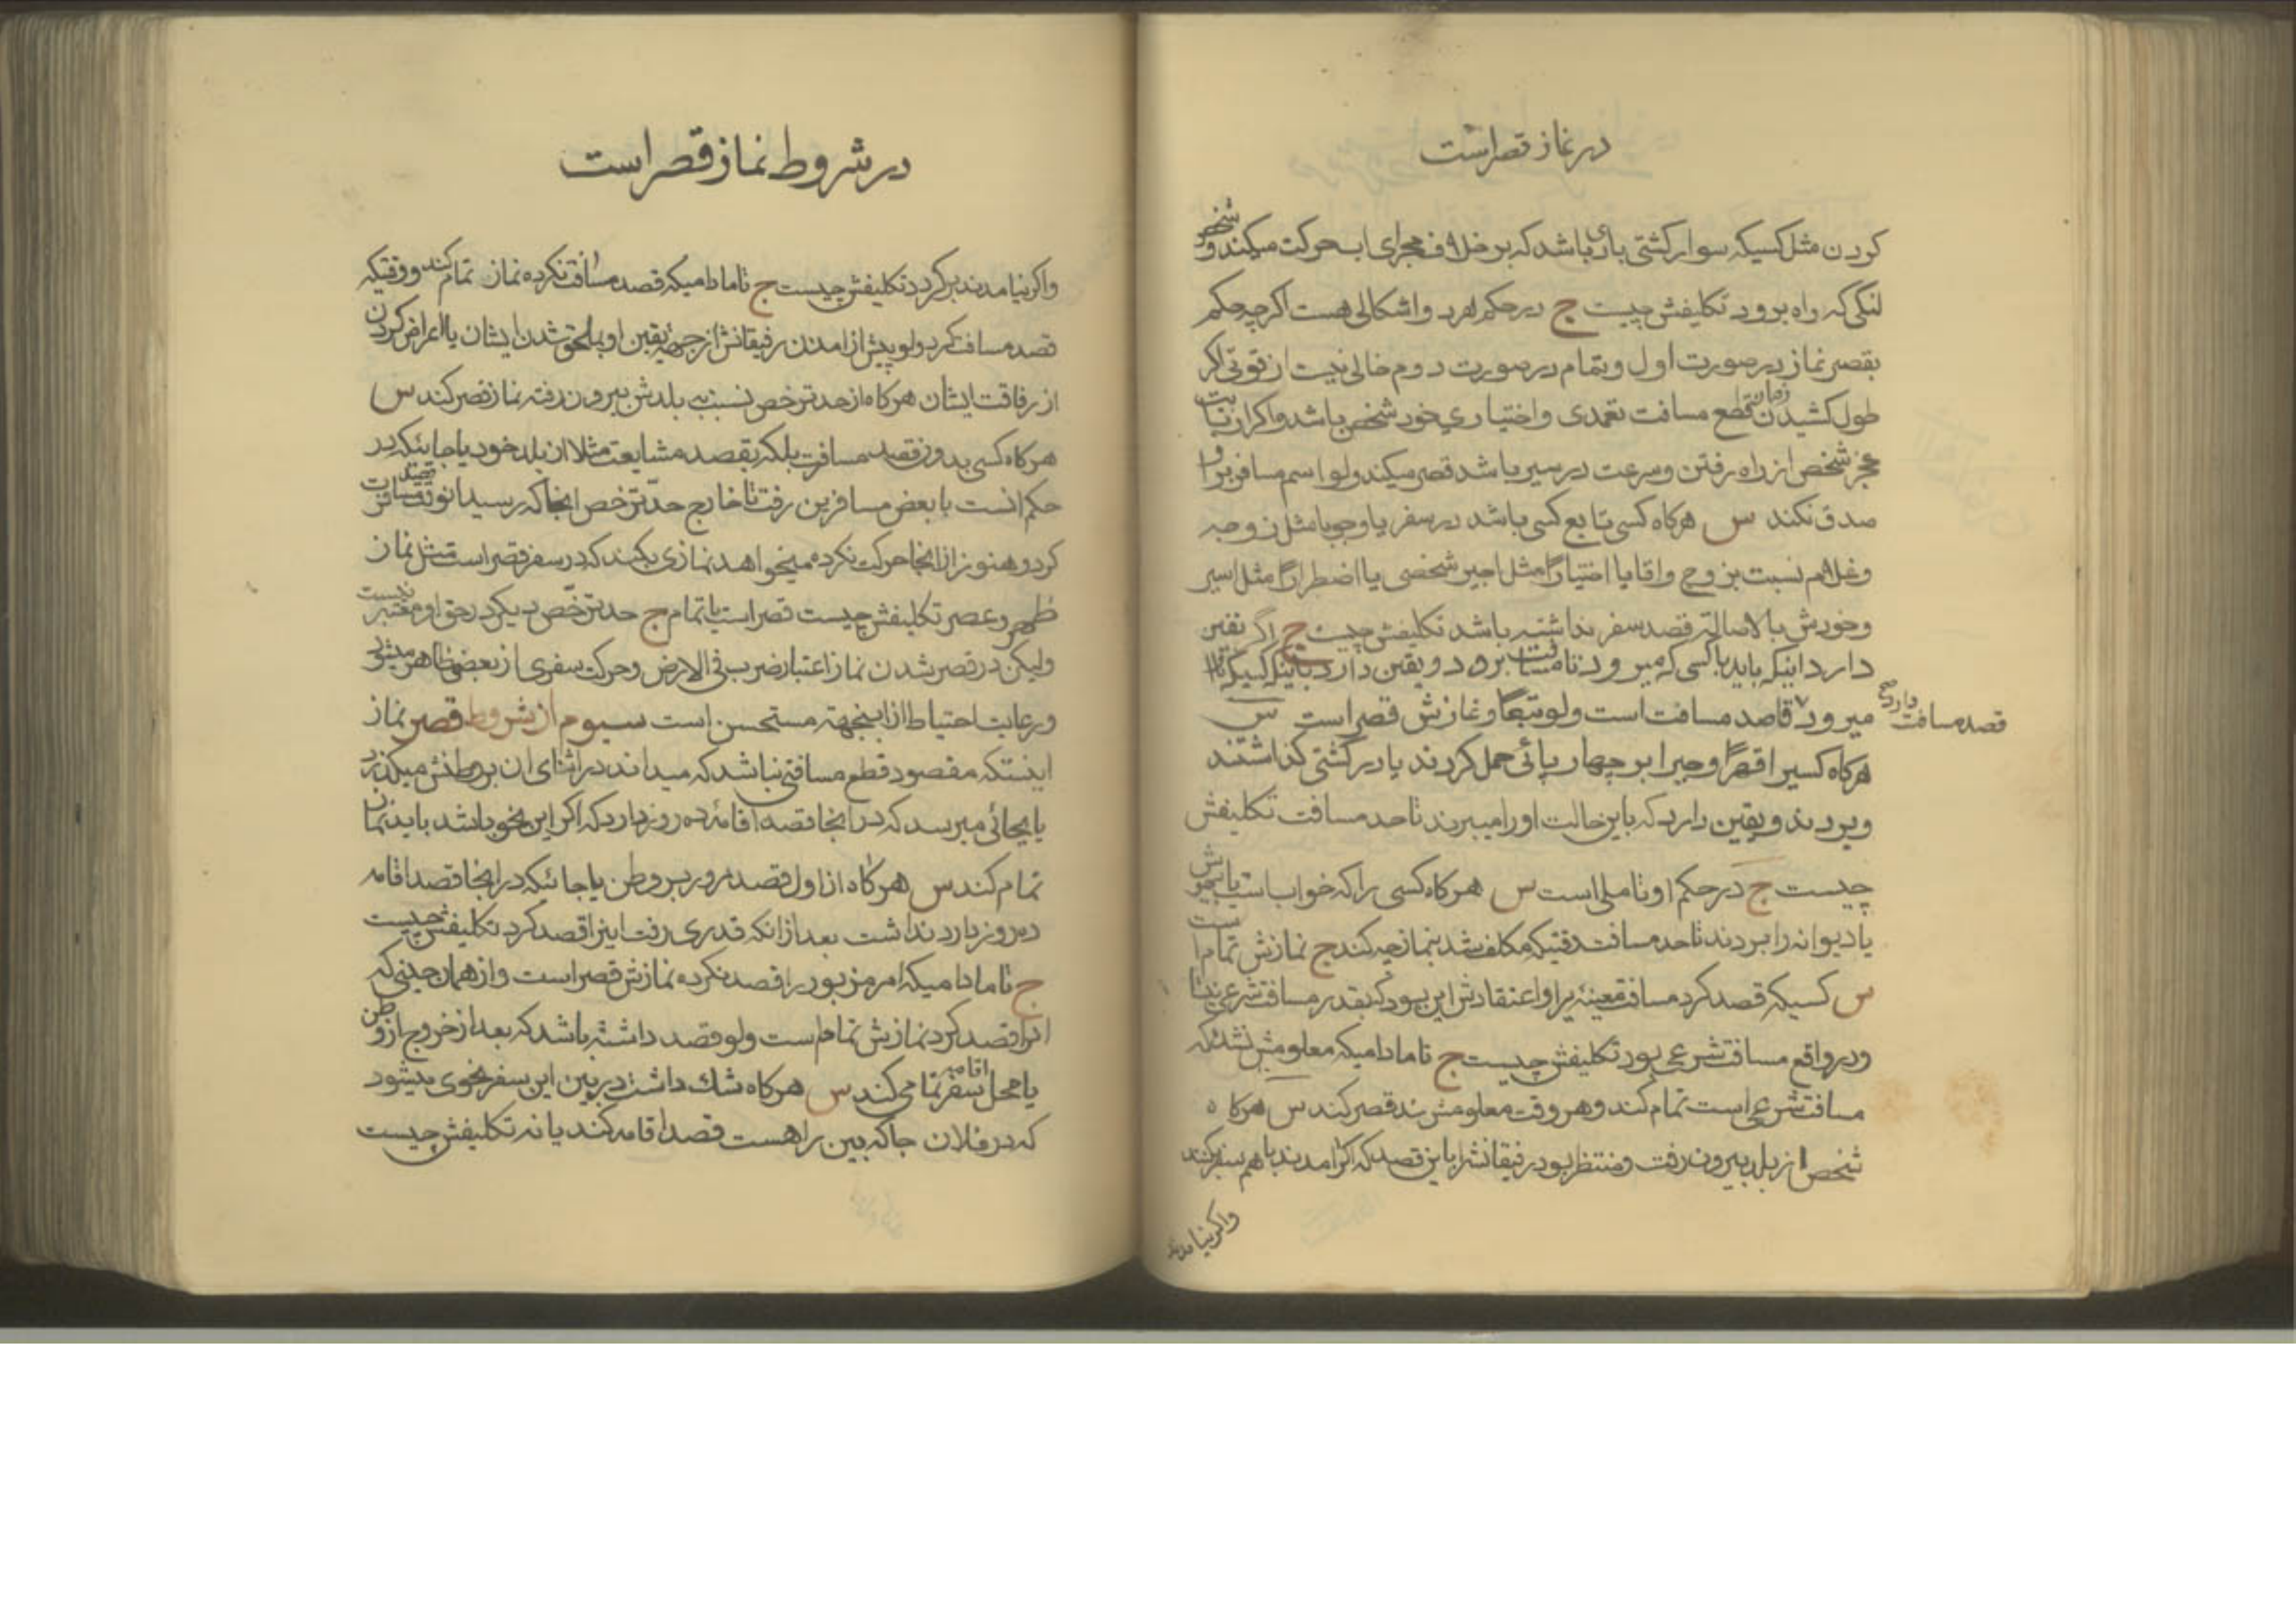 در نماز قصر است
کردن مثل کسیکه سوار کشتی بادی باشد که بر خلاف مجرای اب حرکت میکند و شخص
لنگی که راه برود تکلیفش چیست ج در حکم هر دو اشکالی هست اکرچه حکم
بقصر نماز در صورت اول و بتمام در صورت دوم خالی نیست از قوتی اکر
طول کشیدن زمان قطع مسافت تعمدی و اختیاری خود شخص باشد و اکر از بابت
عجز شخص از راه رفتن و سرعت در سیر باشد قصر میکند ولو اسم مسافر بر او
صدق نکند س هرکاه کسی تابع کسی باشد در سفر یا وجوبا مثل زوجه
و غلام نسبت بزوج و اقا یا اختیارا مثل اجیر شخصی یا اضطرارا مثل اسیر
و خودش بالاصالة قصد سفر نداشته باشد تکلیفش چیست ج اگر یقین
دارد اینکه باید با کسی که میرود تا مسافت برود و یقین دارد باینکه کسیکه با او
میرود قاصد مسافت است ولو تبعا و نمازش قصر است س
قصد مسافت دارد صح
هرکاه کسیرا قهرا و جبرا بر چهارپائی حمل کردند یا در کشتی کذاشتند
و بردند و یقین دارد که باین حالت او را میبرند تا حد مسافت تکلیفش
چیست ج در حکم او تاملی است س هرکاه کسی را که خواب است یا بیهوش
یا دیوانه را بردند تا حد مسافت وقتیکه مکلف شد بنماز چه کند ج نمازش تمام است
س کسیکه قصد کرد مسافت معینه را و اعتقادش این بود که بقدر مسافت شرعی نیست
و در واقع مسافت شرعی بود تکلیفش چیست ج تا مادامیکه معلومش نشد که
مسافت شرعی است تمام کند و هر وقت معلومش شد قصر کند س هرکاه
شخص از بلد بیرون رفت و منتظر بود رفیقانش را باین قصد که اکر امدند با هم سفر کنند
واکر نیامدند
در شروط نماز قصر است
واکر نیامدند بر کردد تکلیفش چیست ج تا مادامیکه قصد مسافت نکرده نماز تمام کند و وقتیکه
قصد مسافت کرد ولو پیش از امدن رفیقانش از جهة یقین او بملحق شدن ایشان یا اعراض کردن
از رفاقت ایشان هرکاه از حد ترخص نسبت به بلدش بیرون رفته نماز قصر کند س
هرکاه کسی بدون قصد مسافرت بلکه بقصد مشایعت مثلا از بلد خود یا جائیکه در
حکم انست با بعض مسافرین رفت تا خارج حد ترخص انجا که رسید انوقت قصد مسافرت
کرد و هنوز از انجا حرکت نکرده میخواهد نمازی بکند که در سفر قصر است مثل نماز
ظهر و عصر تکلیفش چیست قصر است یا تمام ج حد ترخص دیکر در حق او معتبر نیست
ولیکن در قصر شدن نماز اعتبار ضرب فی الارض و حرکت سفری از بعضی ظاهر میشود
و رعایت احتیاط از اینجهة مستحسن است سیوم از شروط قصر نماز
اینستکه مقصود قطع مسافتی نباشد که میداند در اثنای ان بر وطنش میکذرد
یا بجائی میرسد که در انجا قصد اقامه ده روز دارد که اکر این نحو باشد باید نماز
تمام کند س هرکاه از اول قصد مرور بر وطن یا جائیکه در انجا قصد اقامه
ده روز دارد نداشت بعد از انکه قدری رفت اینرا قصد کرد تکلیفش چیست
ج تا مادامیکه امر مزبور را قصد نکرده نمازش قصر است و از همان حینی که
انرا قصد کرد نمازش تمام است ولو قصد داشته باشد که بعد از خروج از وطن
یا محل اقامه سفر تمامی کند س هرکاه شک داشت در بین این سفر نحوی میشود
که در فلان جا که بین راهست قصد اقامه کند یا نه تکلیفش چیست